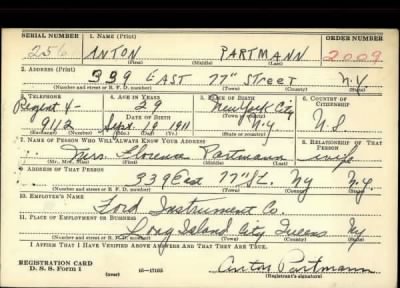 SERIAL NUMBER 1. NAME (Print) ORDER NUMBER
256 ANTON PARTMANN 2009
(First) (Middle) (Last)
2. ADDRESS (Print)
339 EAST 77th STREET N.Y.
(Number and street or R. F. D. number) (Town) (County) (State)
3. TELEPHONE 4. AGE IN YEARS 5. PLACE OF BIRTH 6. COUNTRY OF CITIZENSHIP
Regent 4- 29 New York City
DATE OF BIRTH (Town or county)
9112 Sept. 1911 N.Y. U.S.
(Exchange) (Number) (Mo.) (Day) (Yr.) (State or country)
7. NAME OF PERSON WHO WILL ALWAYS KNOW YOUR ADDRESS 8. RELATIONSHIP OF THAT PERSON
Mrs. Florence Partmann wife
(Mr., Mrs., Miss) (First) (Middle) (Last)
9. ADDRESS OF THAT PERSON
339 East 77th St. NY N.Y.
(Number and street or R. F. D. number) (Town) (County) (State)
10. EMPLOYER'S NAME
Ford Instrument Co.
11. PLACE OF EMPLOYMENT OR BUSINESS
Long Island City Queens NY
(Number and street or R. F. D. number) (Town) (County) (State)
I AFFIRM THAT I HAVE VERIFIED ABOVE ANSWERS AND THAT THEY ARE TRUE.
REGISTRATION CARD
D. S. S. Form 1 (over) 16-17105 Anton Partmann
(Registrant's signature)